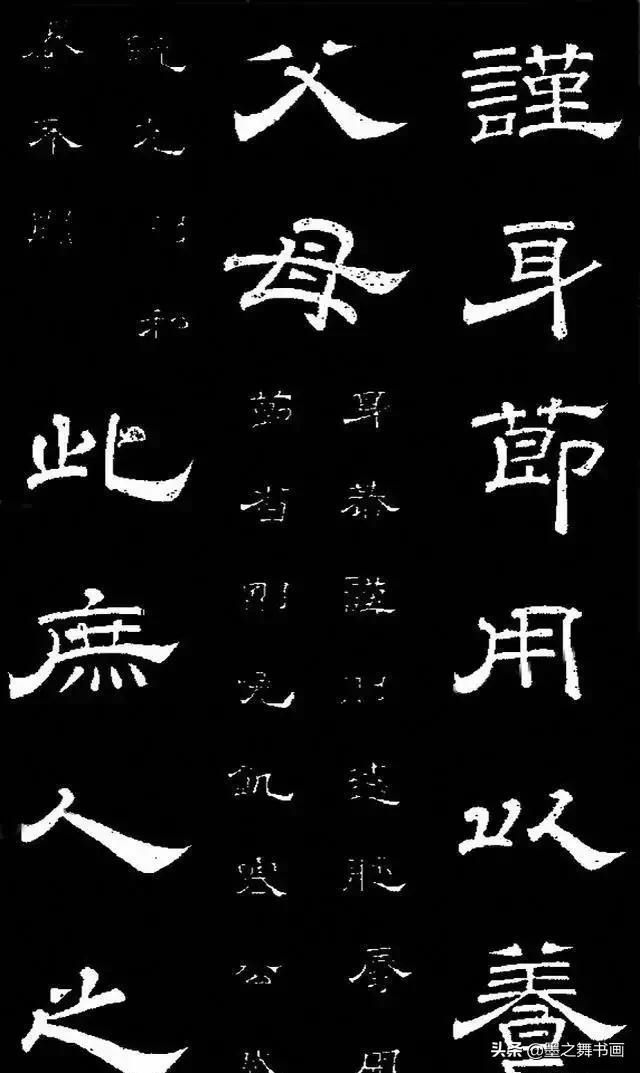 謹身節用以養
父母
身恭謹則遠恥辱用
節省則免飢寒公
既充則私
養不闕
此庶人之
头条 @墨之舞书画